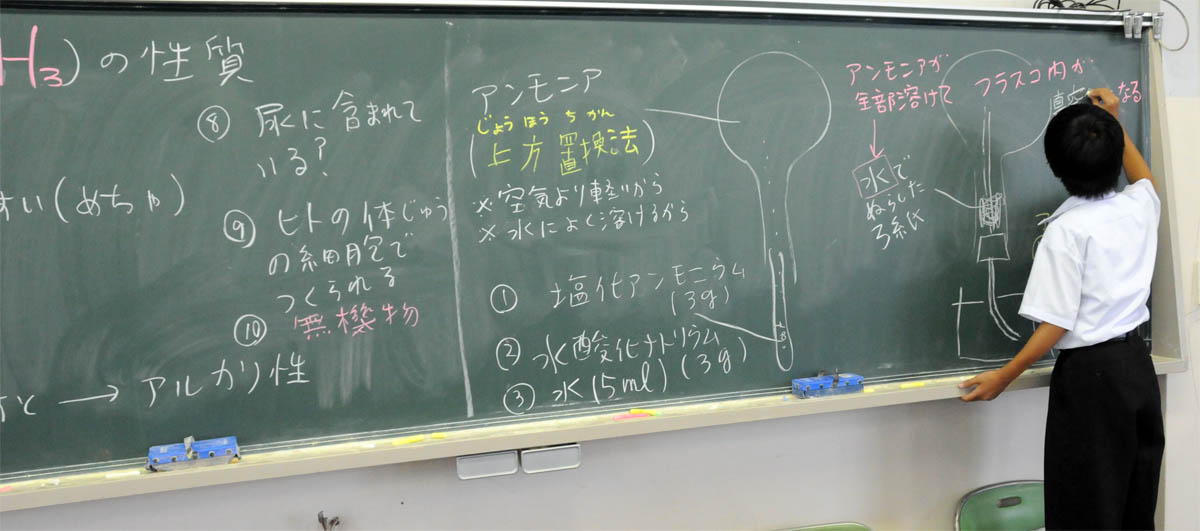 H₃)の性質
⑧ 尿に含まれて
いる?
すい(めちゃ)
⑨ ヒトの体じゅう
の細胞で
つくられる
⑩ 無機物
→ アルカリ性
アンモニア
じょうほうちかん
(上方置換法)
※空気より軽いから
※水によく溶けるから
① 塩化アンモニウム
(3g)
② 水酸化ナトリウム
(3g)
③ 水(5ml)
アンモニアが
全部溶けて
フラスコ内が
真空 なる
水で
ぬらした
ろ紙